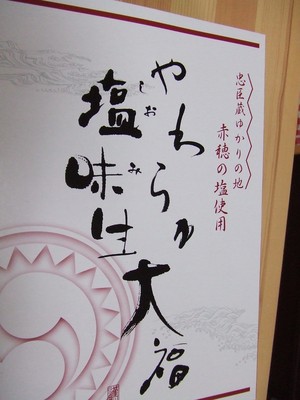 忠臣蔵ゆかりの地
赤穂の塩使用
やわらか
塩味生大福
しおみ